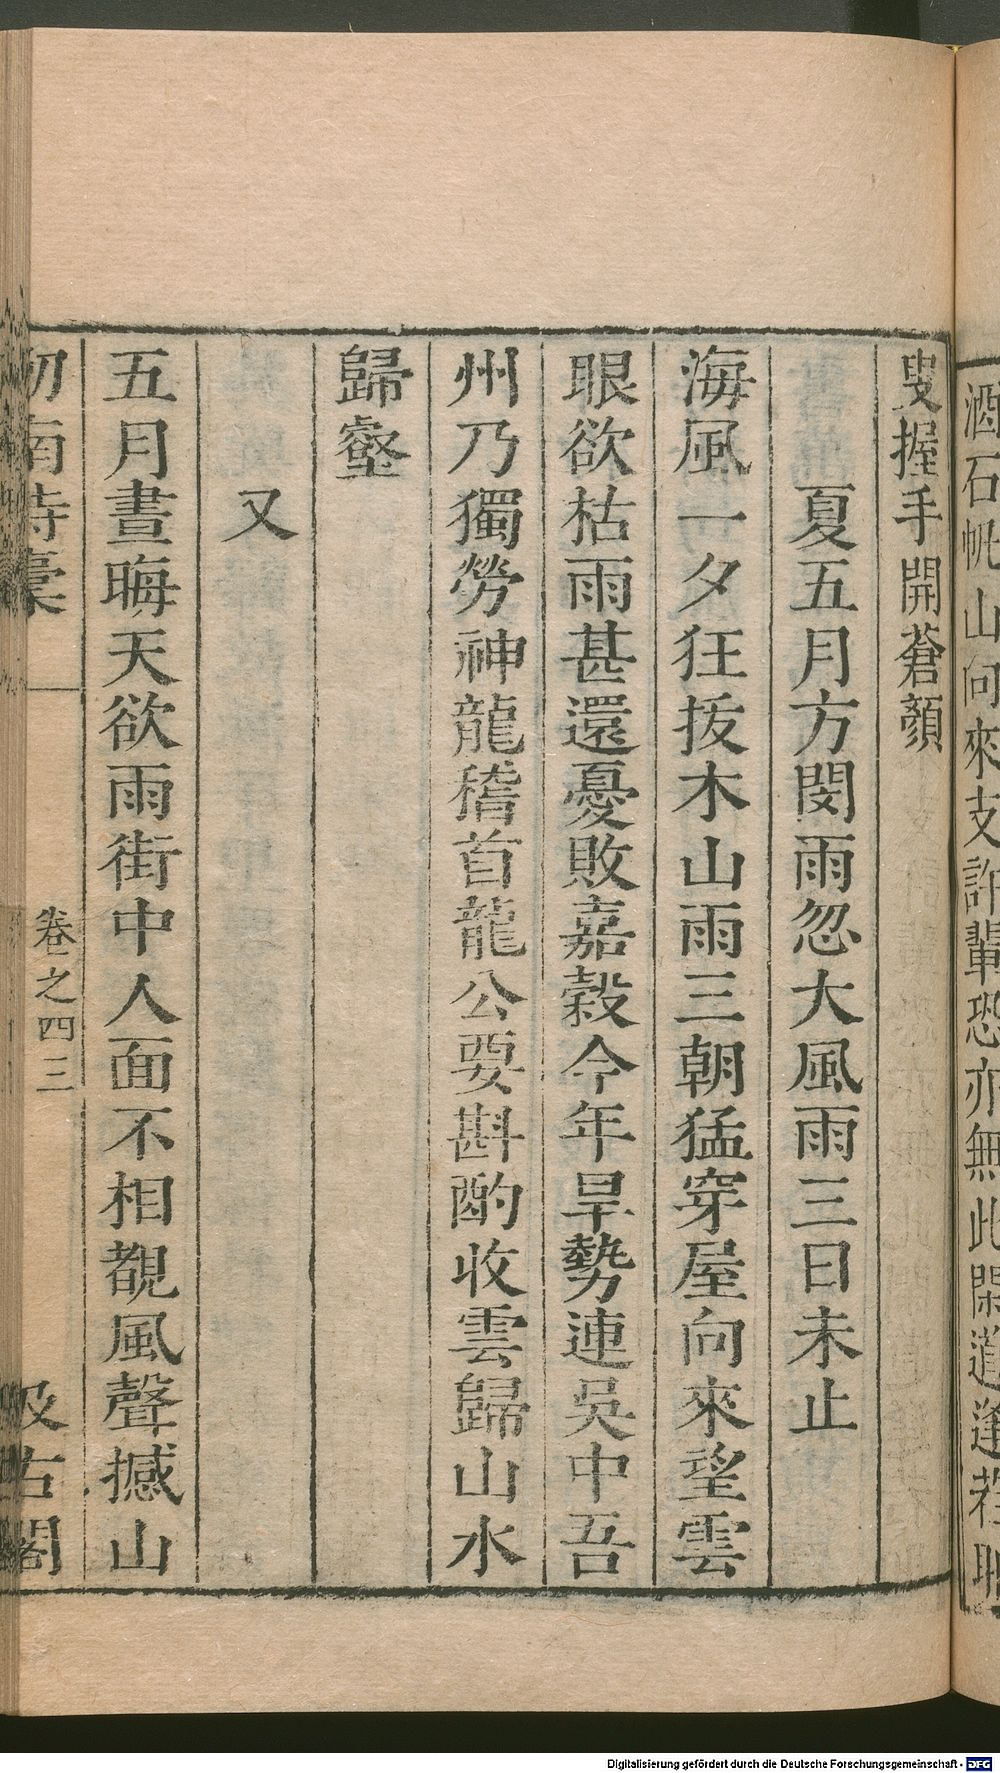 酒石帆山向來支許輩恐亦無此閑道逢若耶
叟握手開蒼顏
夏五月方閔雨忽大風雨三日未止
海風一夕狂拔木山雨三朝猛穿屋向來望雲
眼欲枯雨甚還憂敗嘉穀今年旱勢連吳中吾
州乃獨勞神龍稽首龍公要斟酌收雲歸山水
歸壑
又
五月晝晦天欲雨街中人面不相覩風聲撼山
初南詩稾
卷之四三
汲古閣
Digitalisierung gefördert durch die Deutsche Forschungsgemeinschaft - DFG